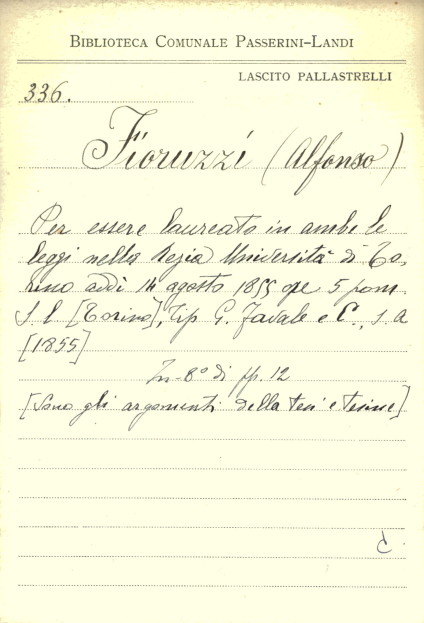 BIBLIOTECA COMUNALE PASSERINI-LANDI
LASCITO PALLASTRELLI
336.
Fioruzzi (Alfonso)
Per essere laureato in ambe le
leggi nella Regia Università di To,
rino addì 14 agosto 1855 ore 5 pom.
S. l. [Torino], Tip G. Favale e C., s. a
[1855]
In-8° di pp. 12
[Sono gli argomenti della tesi e tesine]